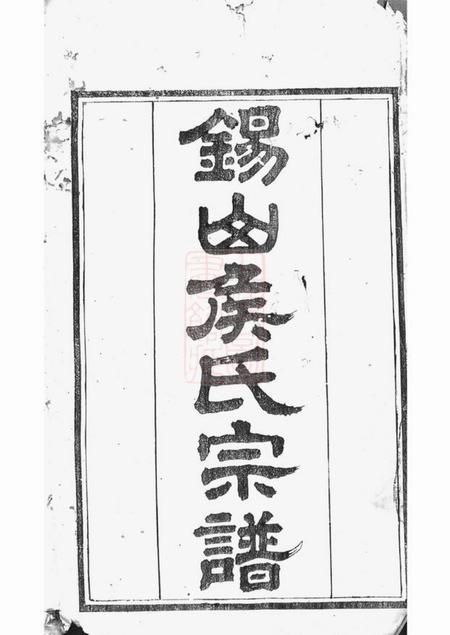 錫山侯氏宗譜